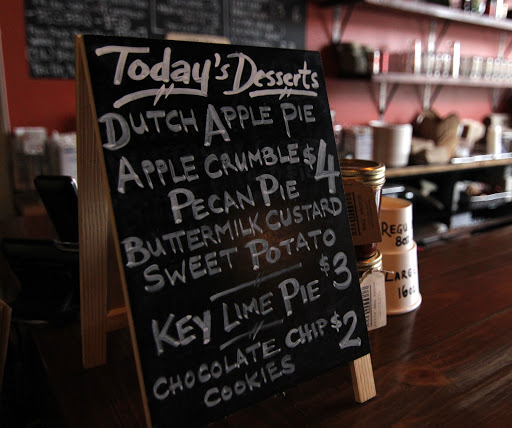 Today's Desserts
DUTCH APPLE PIE
APPLE CRUMBLE $4
PECAN PIE
BUTTERMILK CUSTARD
SWEET POTATO
KEY LIME PIE $3
CHOCOLATE CHIP $2
COOKIES
REGU
8oz
LARGE
16oz